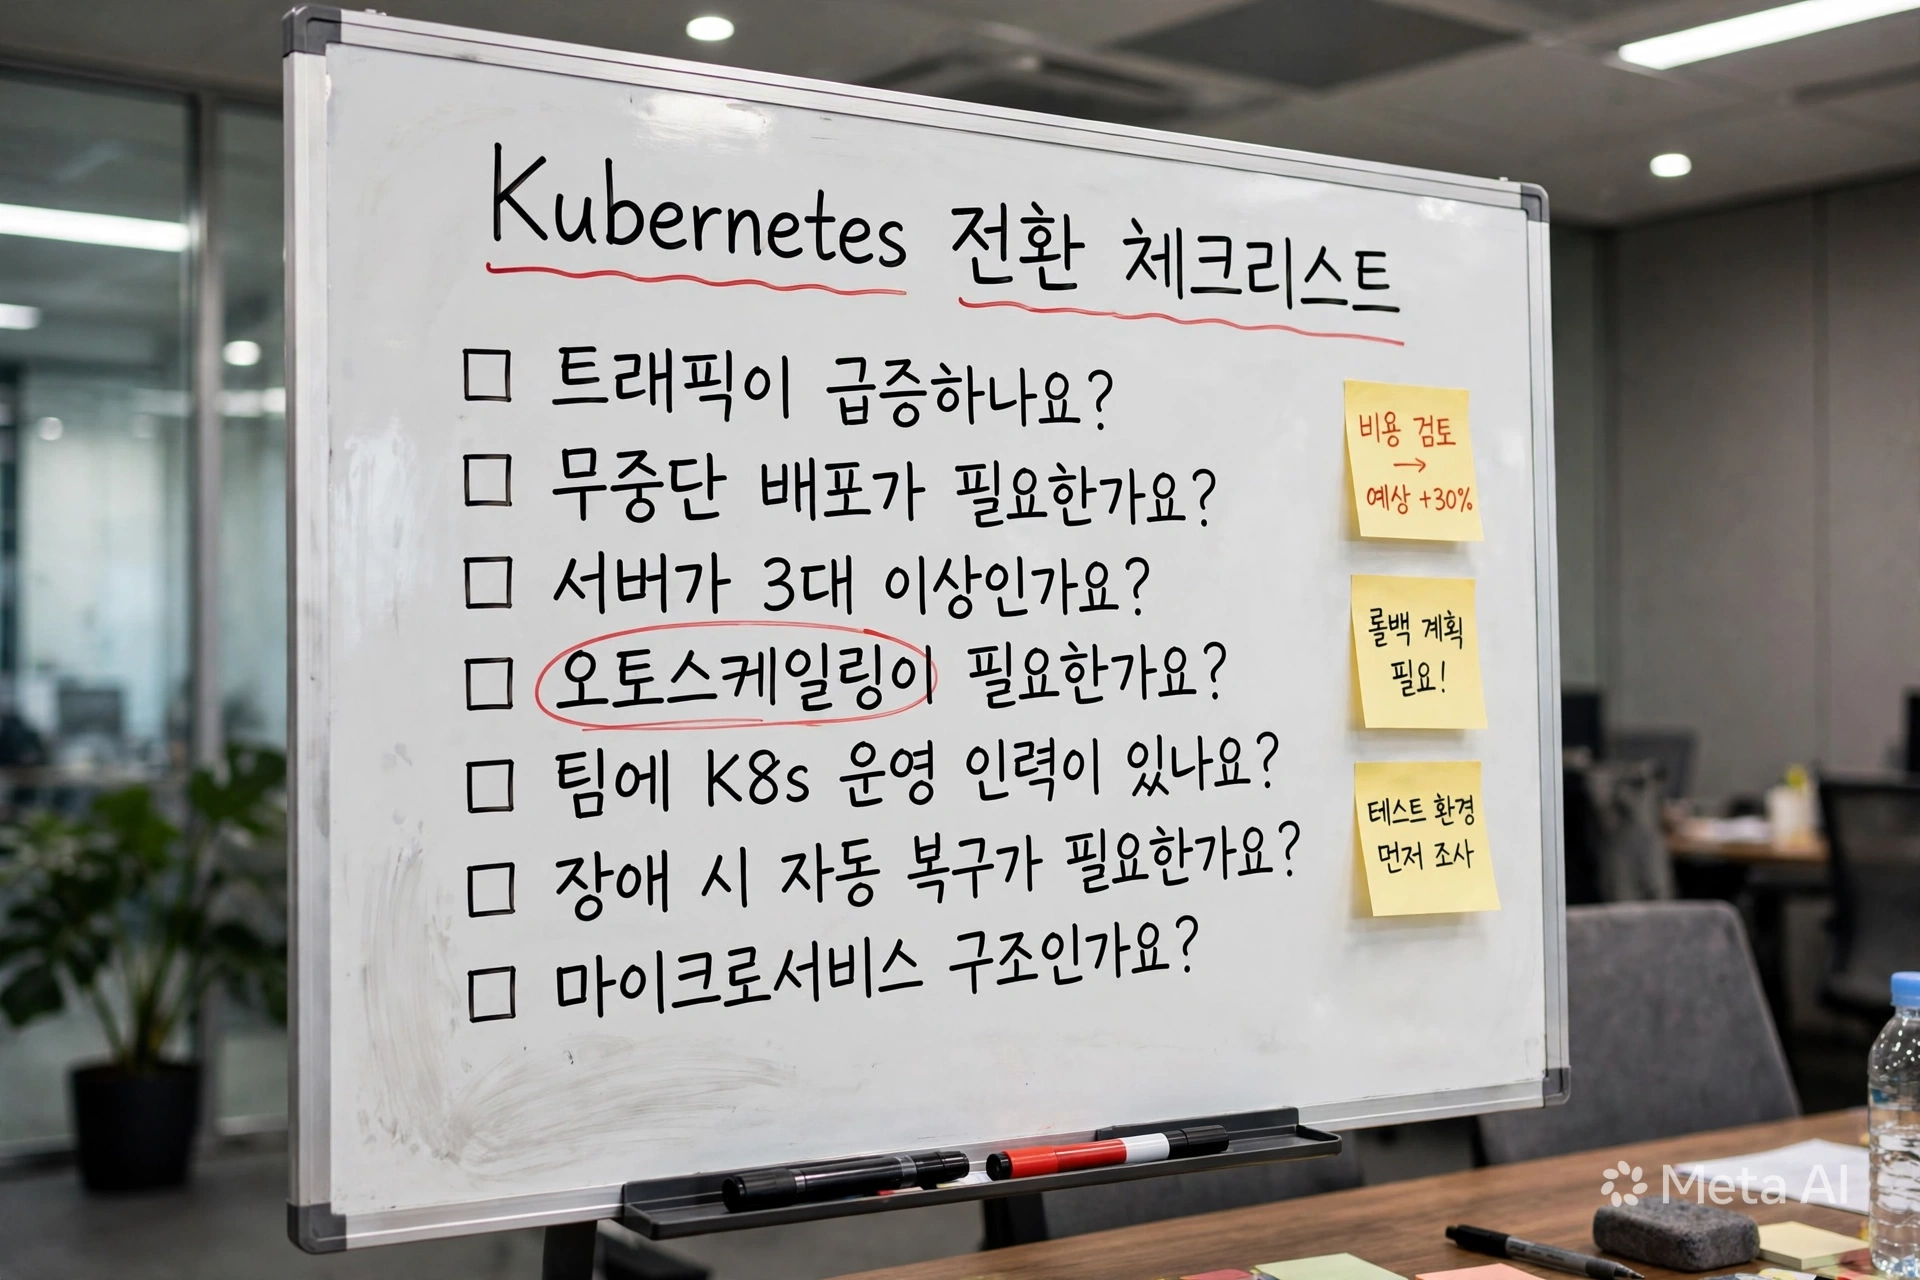 Kubernetes 전환 체크리스트
□ 트래픽이 급증하나요?
□ 무중단 배포가 필요한가요?
□ 서버가 3대 이상인가요?
□ 오토스케일링이 필요한가요?
□ 팀에 K8s 운영 인력이 있나요?
□ 장애 시 자동 복구가 필요한가요?
□ 마이크로서비스 구조인가요?
비용 검토
→
예상 +30%
롤백 계획
필요!
테스트 환경
먼저 조사
Meta AI